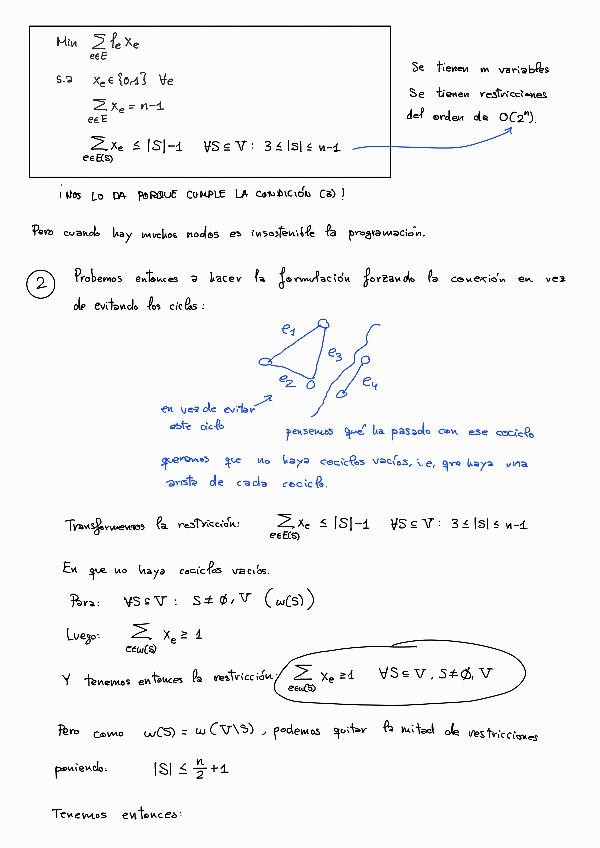 Min ∑ fe xe
e∈E
s.a xe ∈ {0,1} ∀e
∑ xe = n-1
e∈E
∑ xe ≤ |S|-1 ∀S ⊆ V : 3 ≤ |S| ≤ n-1
e∈E(S)
Se tienen m variables
Se tienen restricciones
del orden de O(2ⁿ).
¡NOS LO DA PORQUE CUMPLE LA CONDICIÓN (3)!
Pero cuando hay muchos nodos es insostenible la programación.
2 Probemos entonces a hacer la formulación forzando la conexión en vez
de evitando los ciclos:
e1
e3
e2
e4
en vez de evitar
este ciclo
pensemos qué ha pasado con ese cociclo
queremos que no haya cociclos vacíos, i.e, qro haya una
arista de cada cociclo.
Transformemos la restricción: ∑ xe ≤ |S|-1 ∀S ⊆ V : 3 ≤ |S| ≤ n-1
e∈E(S)
En que no haya cociclos vacíos.
Para: ∀S ⊆ V : S ≠ ∅, V (ω(S))
Luego: ∑ xe ≥ 1
e∈ω(S)
Y tenemos entonces la restricción: ∑ xe ≥ 1 ∀S ⊆ V, S ≠ ∅, V
e∈ω(S)
Pero como ω(S) = ω(V\S), podemos quitar la mitad de restricciones
poniendo: |S| ≤ n/2 + 1
Tenemos entonces: